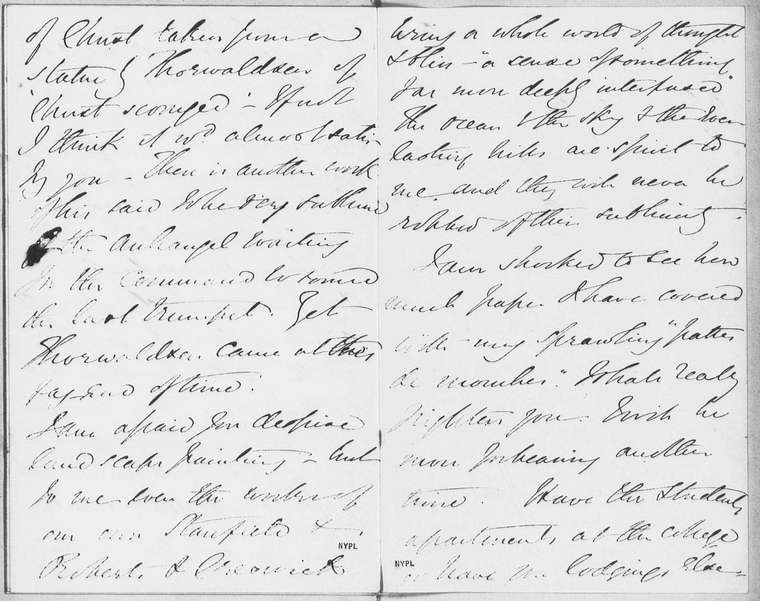 of Christ taken from a
statue by Thorwaldsen of
"Christ scourged" - & that
I think it wd. almost satis-
fy you - There is another work
of his said to be very sublime
the Archangel waiting
for the command to sound
the last trumpet. Yet
Thorwaldsen came at this
fag end of time.
I am afraid you despise
landscape painting - but
to me even the works of
our own Stanfield &
Roberts & Creswick
NYPL
bring a whole world of thought
& bliss - "a sense of something
far more deeply interfused"
The ocean & the sky & the ever-
lasting hills are spirit to
me and they will never be
robbed of their sublimity.
I am shocked to see how
much paper I have covered
with my sprawling "pattes
de mouches". I shall really
frighten you. I will be
more forbearing another
time. Have the students
apartments at the college
or have you lodgings else-
NYPL